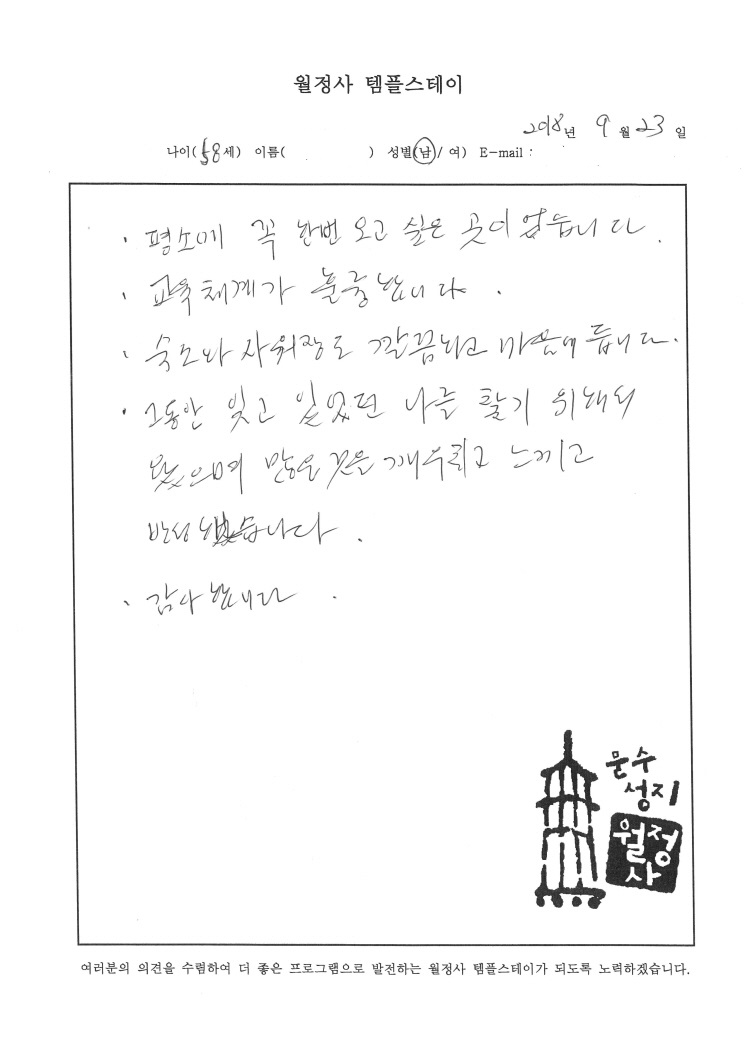 월정사 템플스테이
2018년 9월 23일
나이(58세) 이름( ) 성별(남/ 여) E-mail :
· 평소에 꼭 한번 오고 싶은 곳이었습니다.
· 교육체계가 훌륭합니다.
· 숙소와 샤워장도 깔끔하고 마음에 듭니다.
· 그동안 잊고 있었던 나를 찾기 위해서
왔으며 많은 것을 깨우치고 느끼고
반성했습니다.
· 감사합니다.
문수
성지
월정
사
여러분의 의견을 수렴하여 더 좋은 프로그램으로 발전하는 월정사 템플스테이가 되도록 노력하겠습니다.